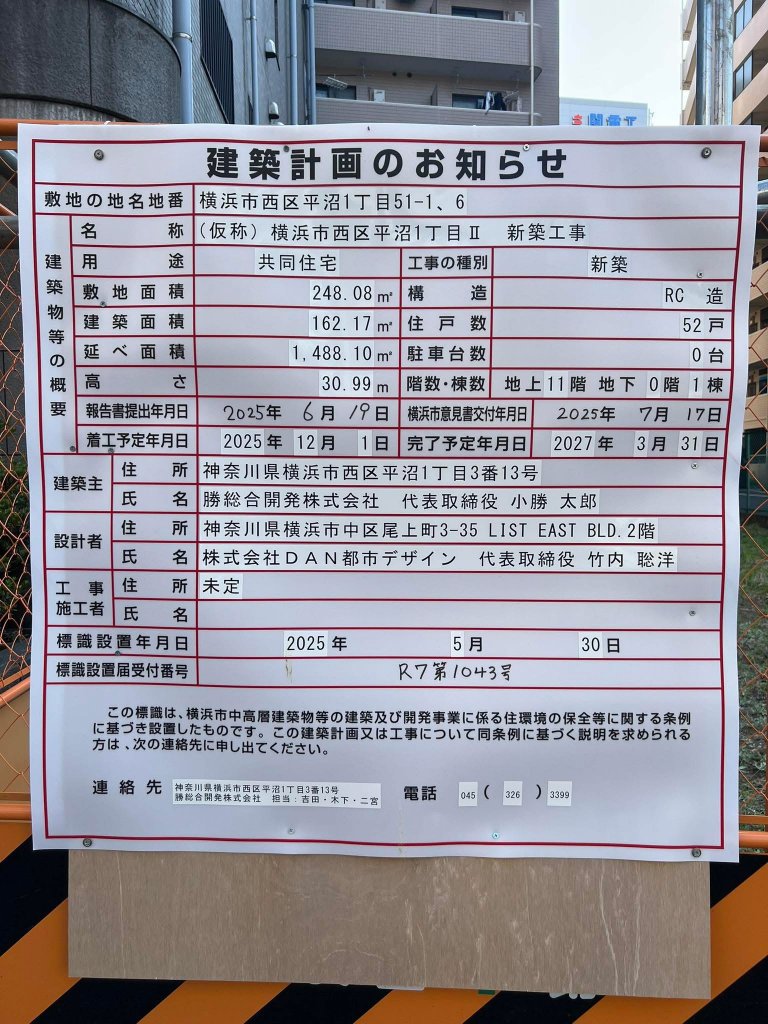 建築計画のお知らせ
敷地の地名地番 横浜市西区平沼1丁目51-1、6
建築物等の概要
名称 (仮称)横浜市西区平沼1丁目Ⅱ 新築工事
用途 共同住宅 工事の種別 新築
敷地面積 248.08㎡ 構造 RC 造
建築面積 162.17㎡ 住戸数 52戸
延べ面積 1,488.10㎡ 駐車台数 0台
高さ 30.99m 階数・棟数 地上11階 地下0階 1棟
報告書提出年月日 2025年 6月 19日 横浜市意見書交付年月日 2025年 7月 17日
着工予定年月日 2025年 12月 1日 完了予定年月日 2027年 3月 31日
建築主 住所 神奈川県横浜市西区平沼1丁目3番13号
氏名 勝総合開発株式会社 代表取締役 小勝 太郎
設計者 住所 神奈川県横浜市中区尾上町3-35 LIST EAST BLD.2階
氏名 株式会社DAN都市デザイン 代表取締役 竹内 聡洋
工事施工者 住所 未定
氏名
標識設置年月日 2025年 5月 30日
標識設置届受付番号 R7第1043号
この標識は、横浜市中高層建築物等の建築及び開発事業に係る住環境の保全等に関する条例
に基づき設置したものです。この建築計画又は工事について同条例に基づく説明を求められる
方は、次の連絡先に申し出てください。
連絡先 神奈川県横浜市西区平沼1丁目3番13号
勝総合開発株式会社 担当:吉田・木下・二宮
電話 045(326)3399